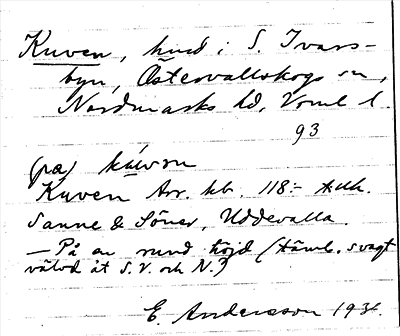 Kuven, hmd i S. Ivars-
byn, Östervallskogs sn,
Nordmarks hd, Vrml l.
93
(pæ)
Kuven Arr. hb. 118:-
Sanne & Söner, Uddevalla.
— På en rund höjd (täml. svagt
välvd åt S.V. och N.)
E Andersson 193